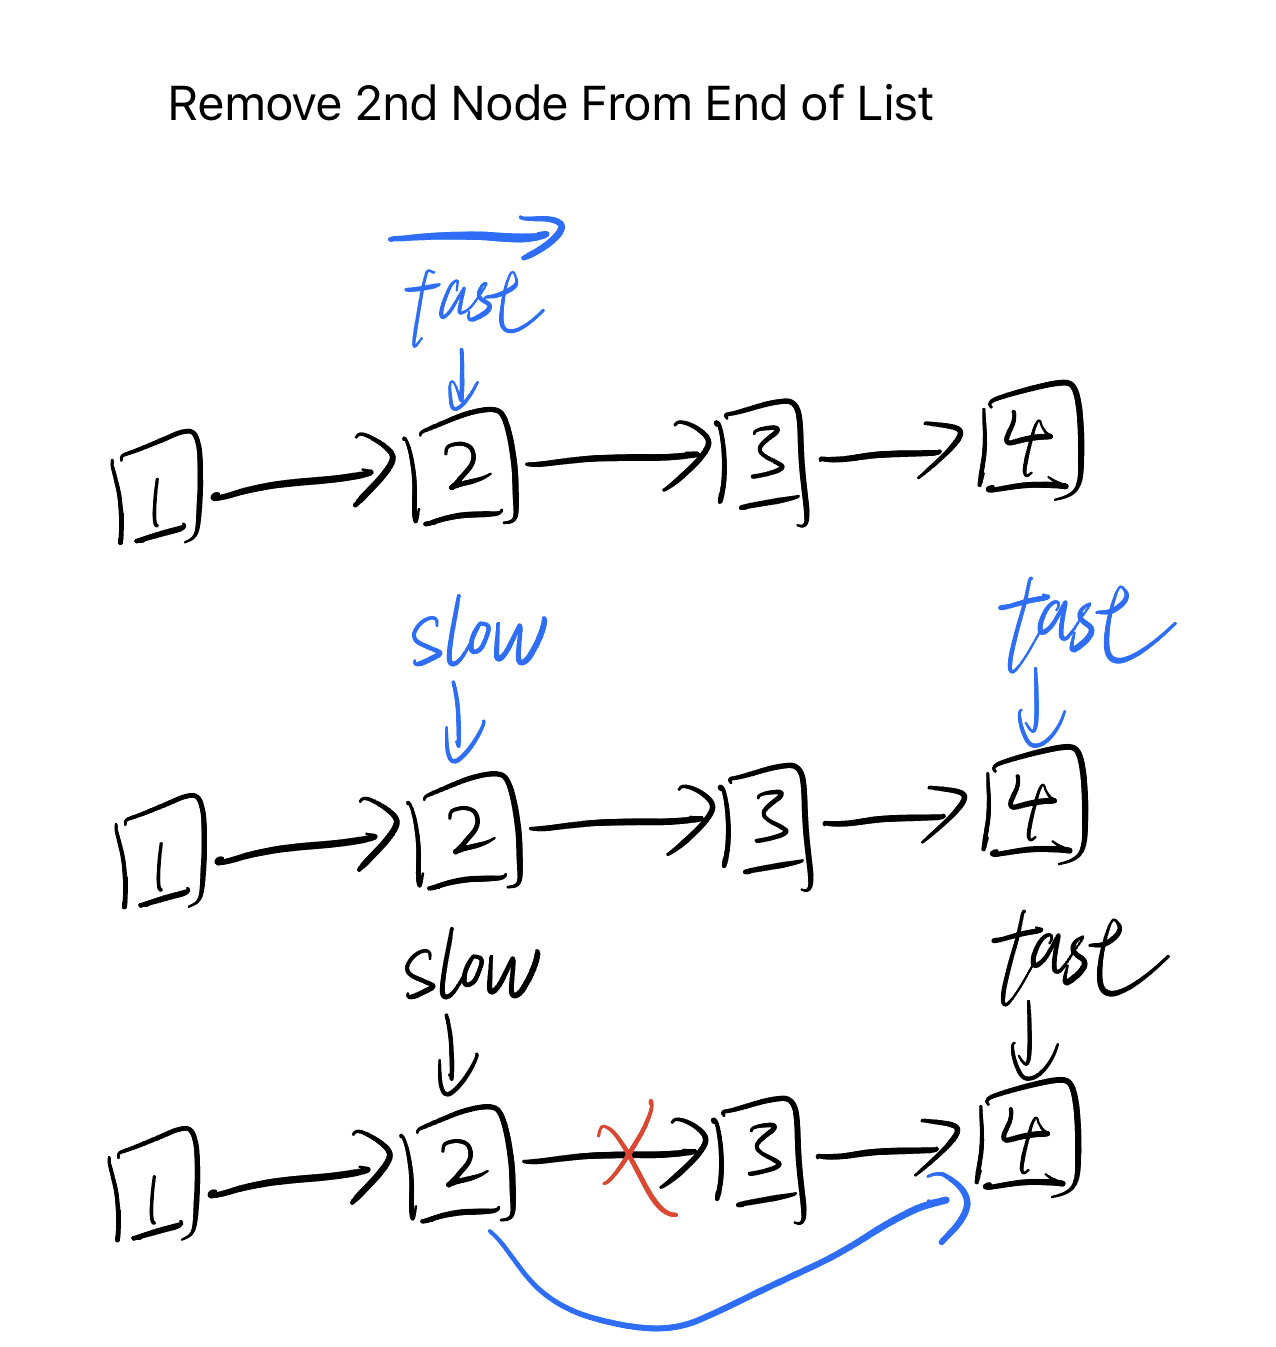 Remove 2nd Node From End of List
fast
1 2 3 4
slow fast
1 2 3 4
slow fast
1 2 3 4